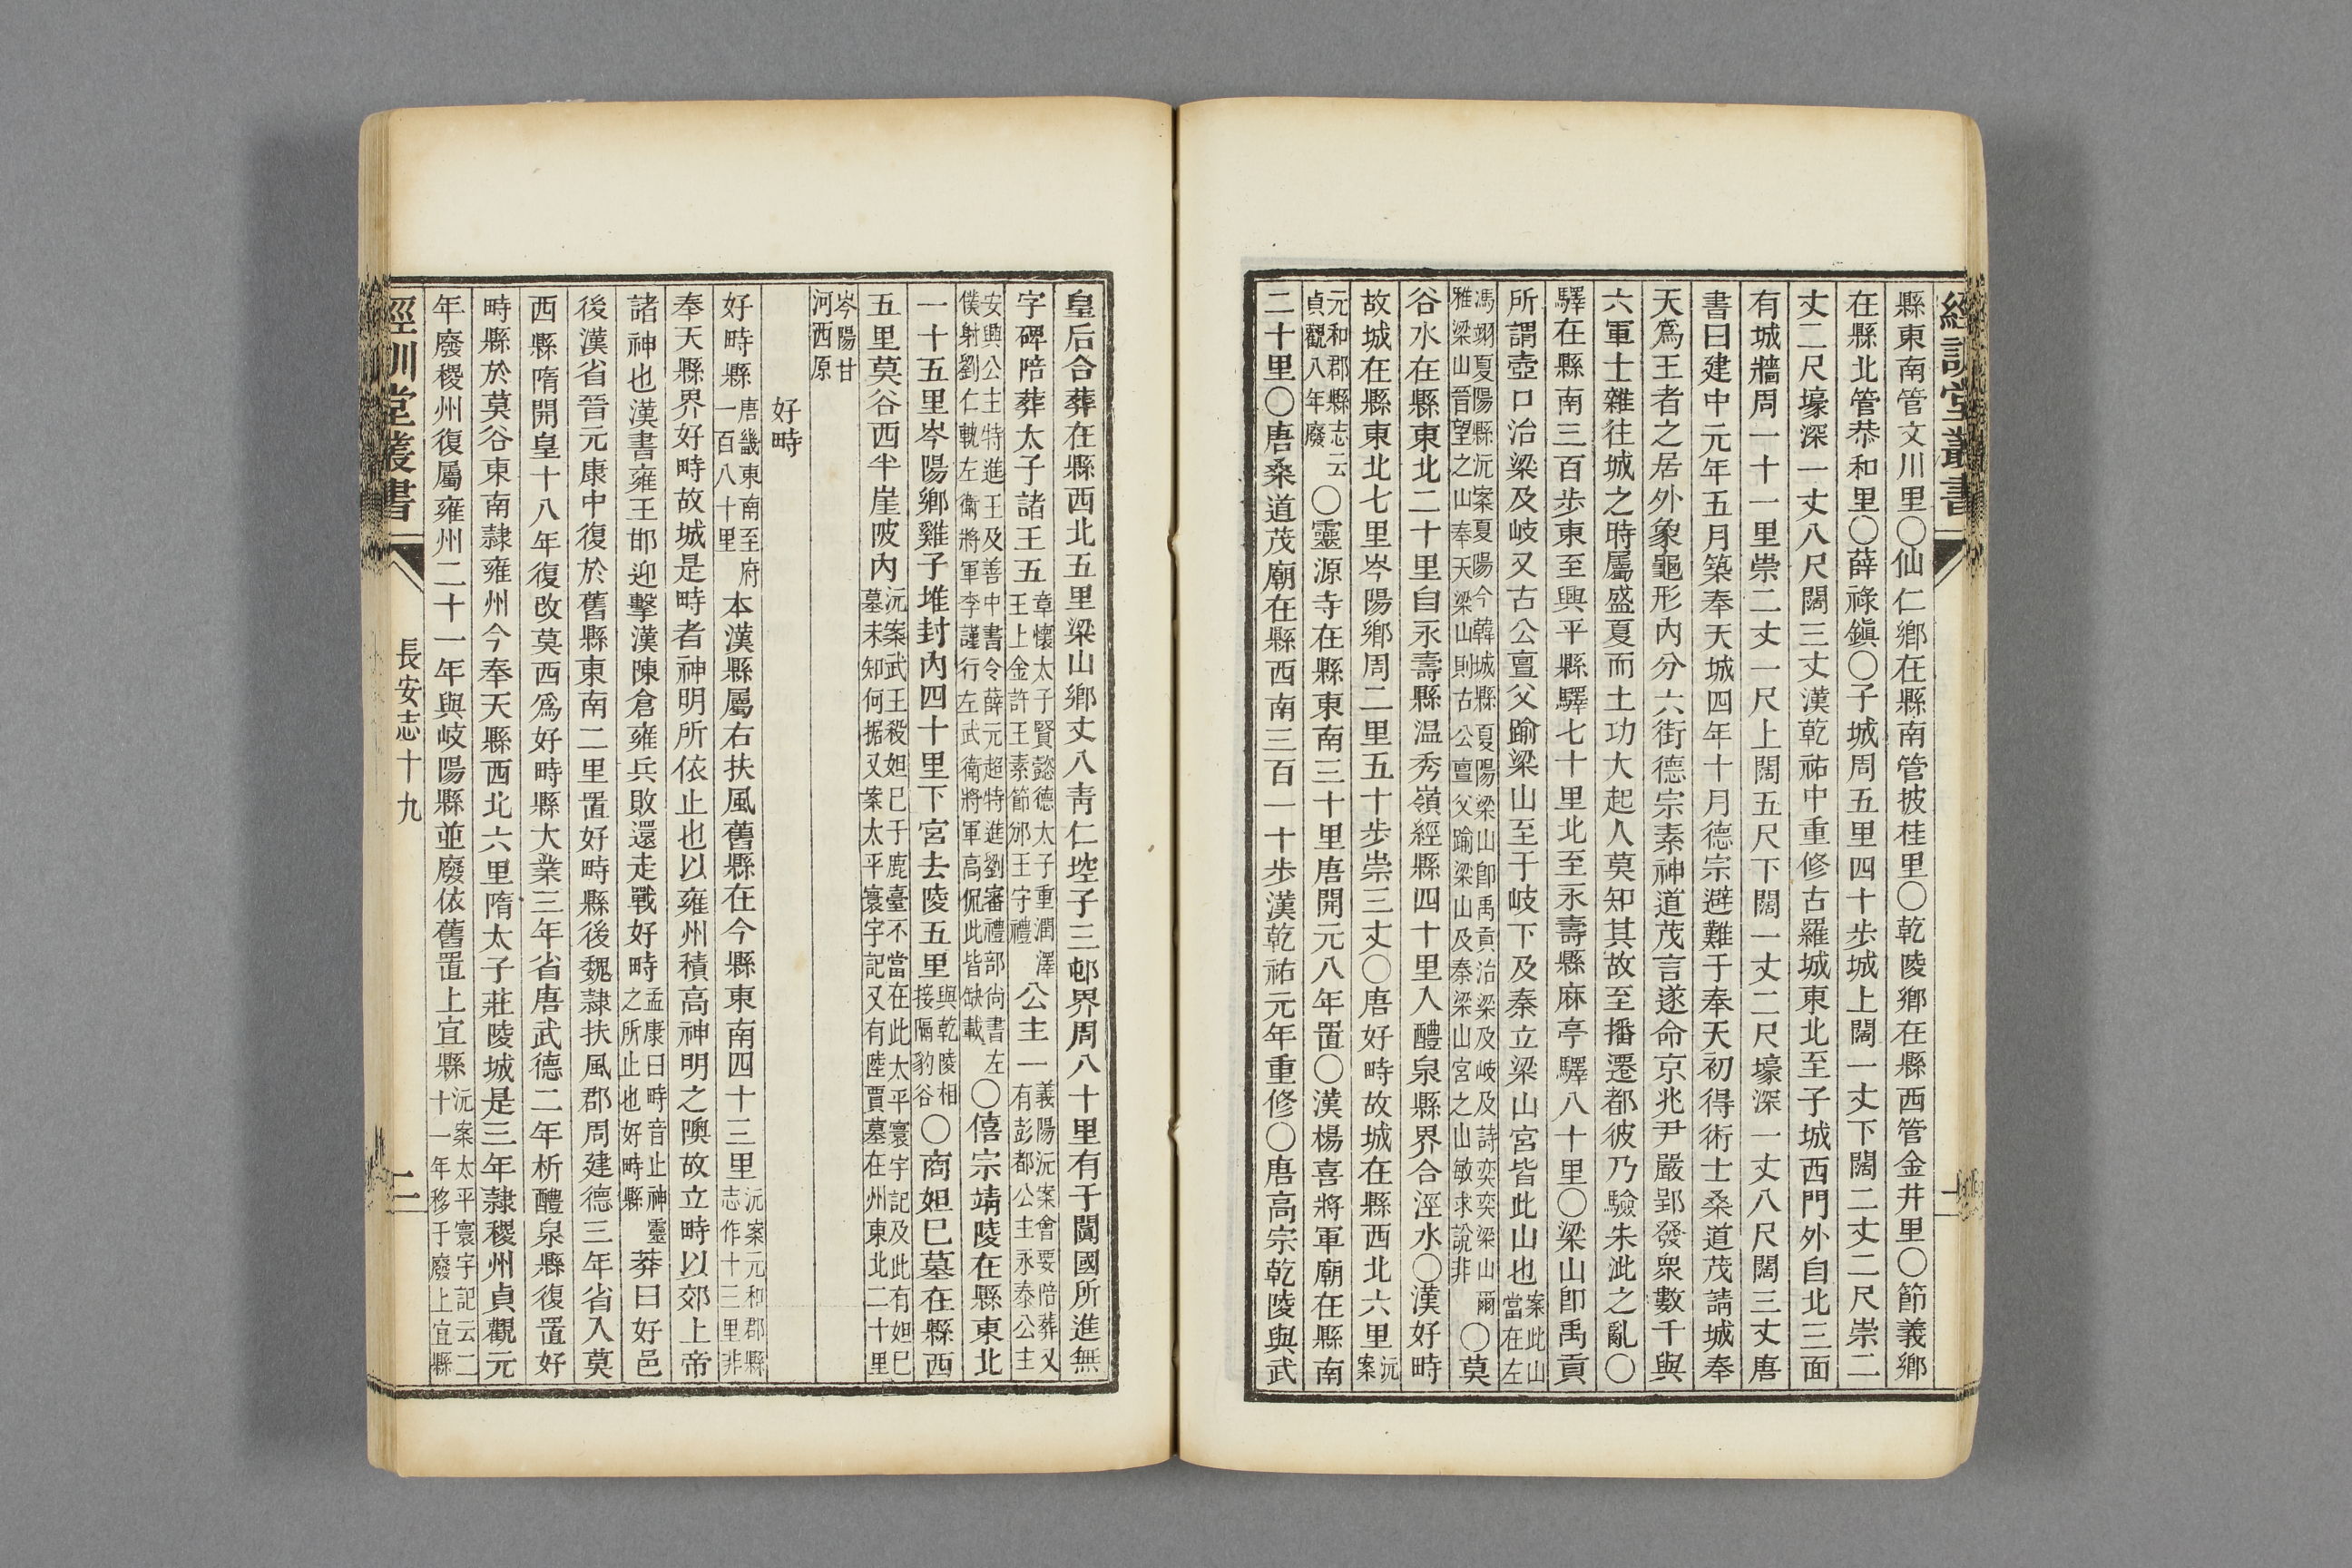 經訓堂叢書
縣東南管文川里〇仙仁鄉在縣南管披桂里〇乾陵鄉在縣西管金井里〇節義鄉
在縣北管恭和里〇薛祿鎭〇子城周五里四十步城上闊一丈下闊二丈二尺崇二
丈二尺壕深一丈八尺闊三丈漢乾祐中重修古羅城東北至子城西門外自北三面
有城牆周一十一里崇二丈一尺上闊五尺下闊一丈二尺壕深一丈八尺闊三丈唐
書曰建中元年五月築奉天城四年十月德宗避難于奉天初得術士桑道茂請城奉
天爲王者之居外象龜形內分六街德宗素神道茂言遂命京兆尹嚴郢發衆數千與
六軍士雜往城之時屬盛夏而土功大起人莫知其故至播遷都彼乃驗朱泚之亂〇
驛在縣南三百步東至興平縣驛七十里北至永壽縣麻亭驛八十里〇梁山卽禹貢
所謂壺口治梁及岐又古公亶父踰梁山至于岐下及秦立梁山宮皆此山也案此山當在左
馮翊夏陽縣沅案夏陽今韓城縣夏陽梁山卽禹貢治梁及岐及詩奕奕梁山爾雅梁山晉望之山奉天梁山則古公亶父踰梁山及秦梁山宮之山敏求說非〇莫
谷水在縣東北二十里自永壽縣温秀嶺經縣四十里入醴泉縣界合涇水〇漢好畤
故城在縣東北七里岑陽鄉周二里五十步崇三丈〇唐好畤故城在縣西北六里沅案
元和郡縣志云貞觀八年廢〇靈源寺在縣東南三十里唐開元八年置〇漢楊喜將軍廟在縣南
二十里〇唐桑道茂廟在縣西南三百一十步漢乾祐元年重修〇唐高宗乾陵與武
皇后合葬在縣西北五里梁山鄉丈八靑仁埪子三邨界周八十里有于闐國所進無
字碑陪葬太子諸王五章懷太子賢懿德太子重潤澤王上金許王素節邠王守禮公主一義陽沅案會要陪葬又有彭都公主永泰公主
安興公主特進王及善中書令薛元超特進劉審禮禮部尙書左僕射劉仁軌左衛將軍李謹行左武衛將軍高侃此皆缺載〇僖宗靖陵在縣東北
一十五里岑陽鄉雞子堆封內四十里下宮去陵五里與乾陵相接隔豹谷〇商妲巳墓在縣西
五里莫谷西半崖陂內沅案武王殺妲巳于鹿臺不當在此太平寰宇記及此有妲巳墓未知何据又案太平寰宇記又有陸賈墓在州東北二十里
岑陽甘河西原
好畤
好畤縣唐畿東南至府一百八十里本漢縣屬右扶風舊縣在今縣東南四十三里沅案元和郡縣志作十三里非
奉天縣界好畤故城是畤者神明所依止也以雍州積高神明之隩故立畤以郊上帝
諸神也漢書雍王邯迎擊漢陳倉雍兵敗還走戰好畤孟康曰畤音止神靈之所止也好畤縣莽曰好邑
後漢省晉元康中復於舊縣東南二里置好畤縣後魏隸扶風郡周建德三年省入莫
西縣隋開皇十八年復改莫西爲好畤縣大業三年省唐武德二年析醴泉縣復置好
畤縣於莫谷東南隸雍州今奉天縣西北六里隋太子莊陵城是三年隸稷州貞觀元
年廢稷州復屬雍州二十一年與岐陽縣並廢依舊置上宜縣沅案太平寰宇記云二十一年移于廢上宜縣
經訓堂叢書
長安志十九
二